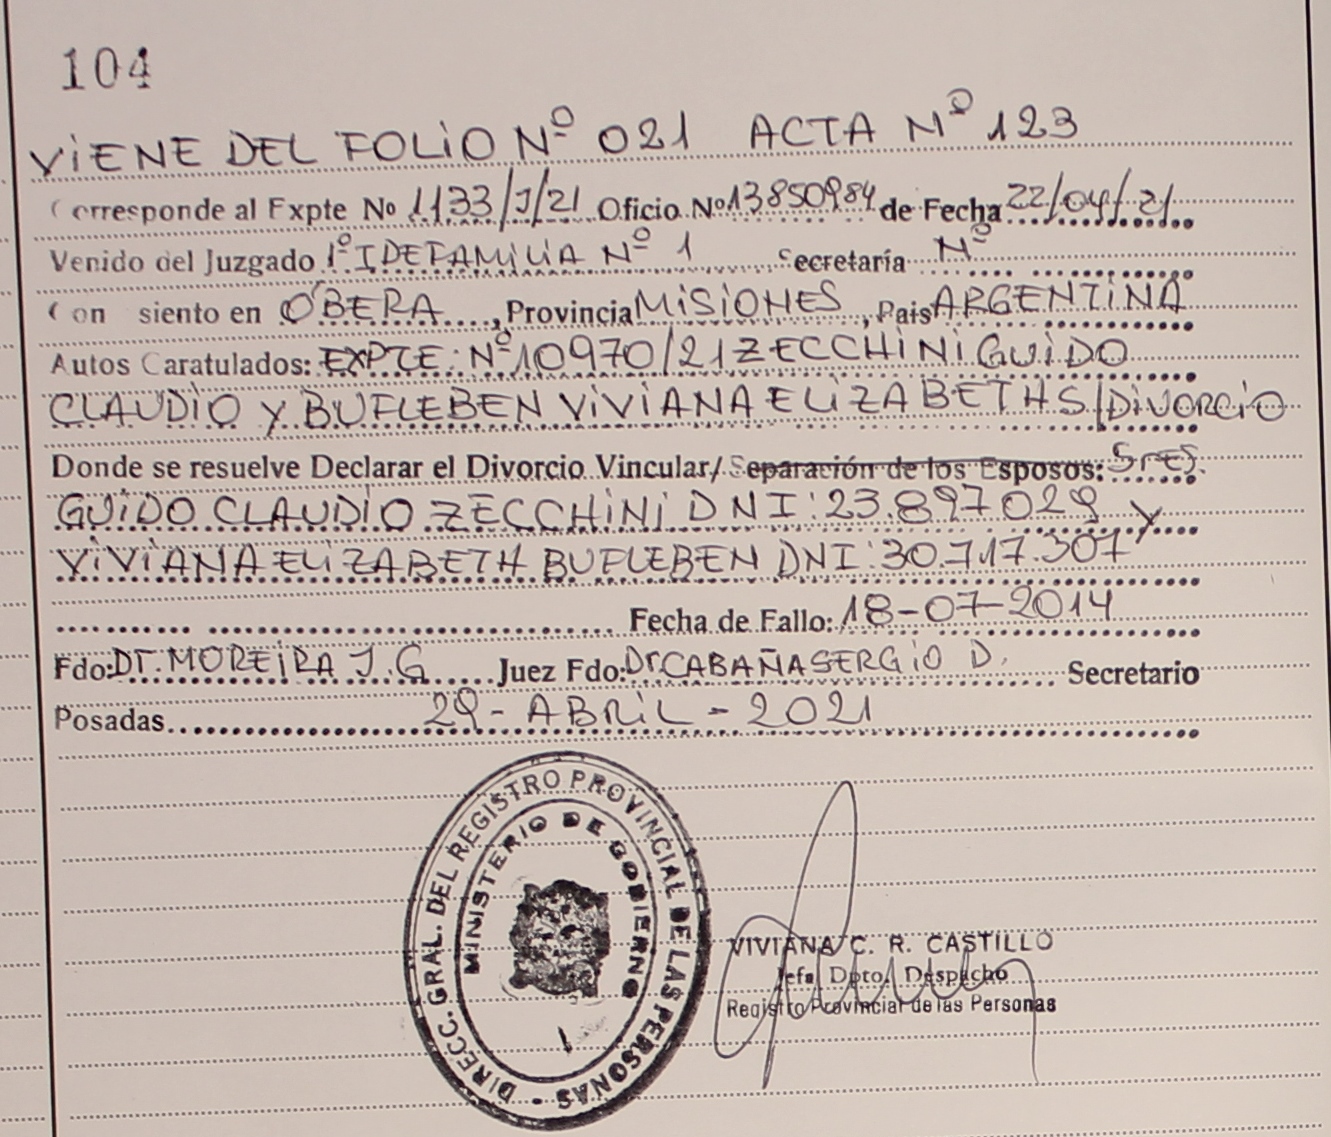 104
VIENE DEL FOLIO Nº 021 ACTA Nº 123
Corresponde al Expte No 1133/J/21 Oficio Nº 13850984 de Fecha 22/04/21
Venido del Juzgado 1º I DE FAMILIA Nº 1 Secretaría Nº
Con siento en OBERA, Provincia MISIONES, Pais ARGENTINA
Autos Caratulados: EXPTE: Nº 10970/21 ZECCHINI GUIDO
CLAUDIO Y BUFLEBEN VIVIANA ELIZABETH S/DIVORCIO
Donde se resuelve Declarar el Divorcio Vincular/Separación de los Esposos: Sres.
GUIDO CLAUDIO ZECCHINI DNI: 23.897029 Y
VIVIANA ELIZABETH BUFLEBEN DNI: 30.717.307
Fecha de Fallo: 18-07-2014
Fdo: Dr. MOREIRA J.G Juez Fdo: Dr CABAÑA SERGIO D. Secretario
Posadas 29-ABRIL-2021
DIRECC. GRAL. DEL REGISTRO PROVINCIAL DE LAS PERSONAS -
MINISTERIO DE GOBIERNO
VIVIANA C. R. CASTILLO
Jefa Dpto. Despacho
Registro Provincial de las Personas